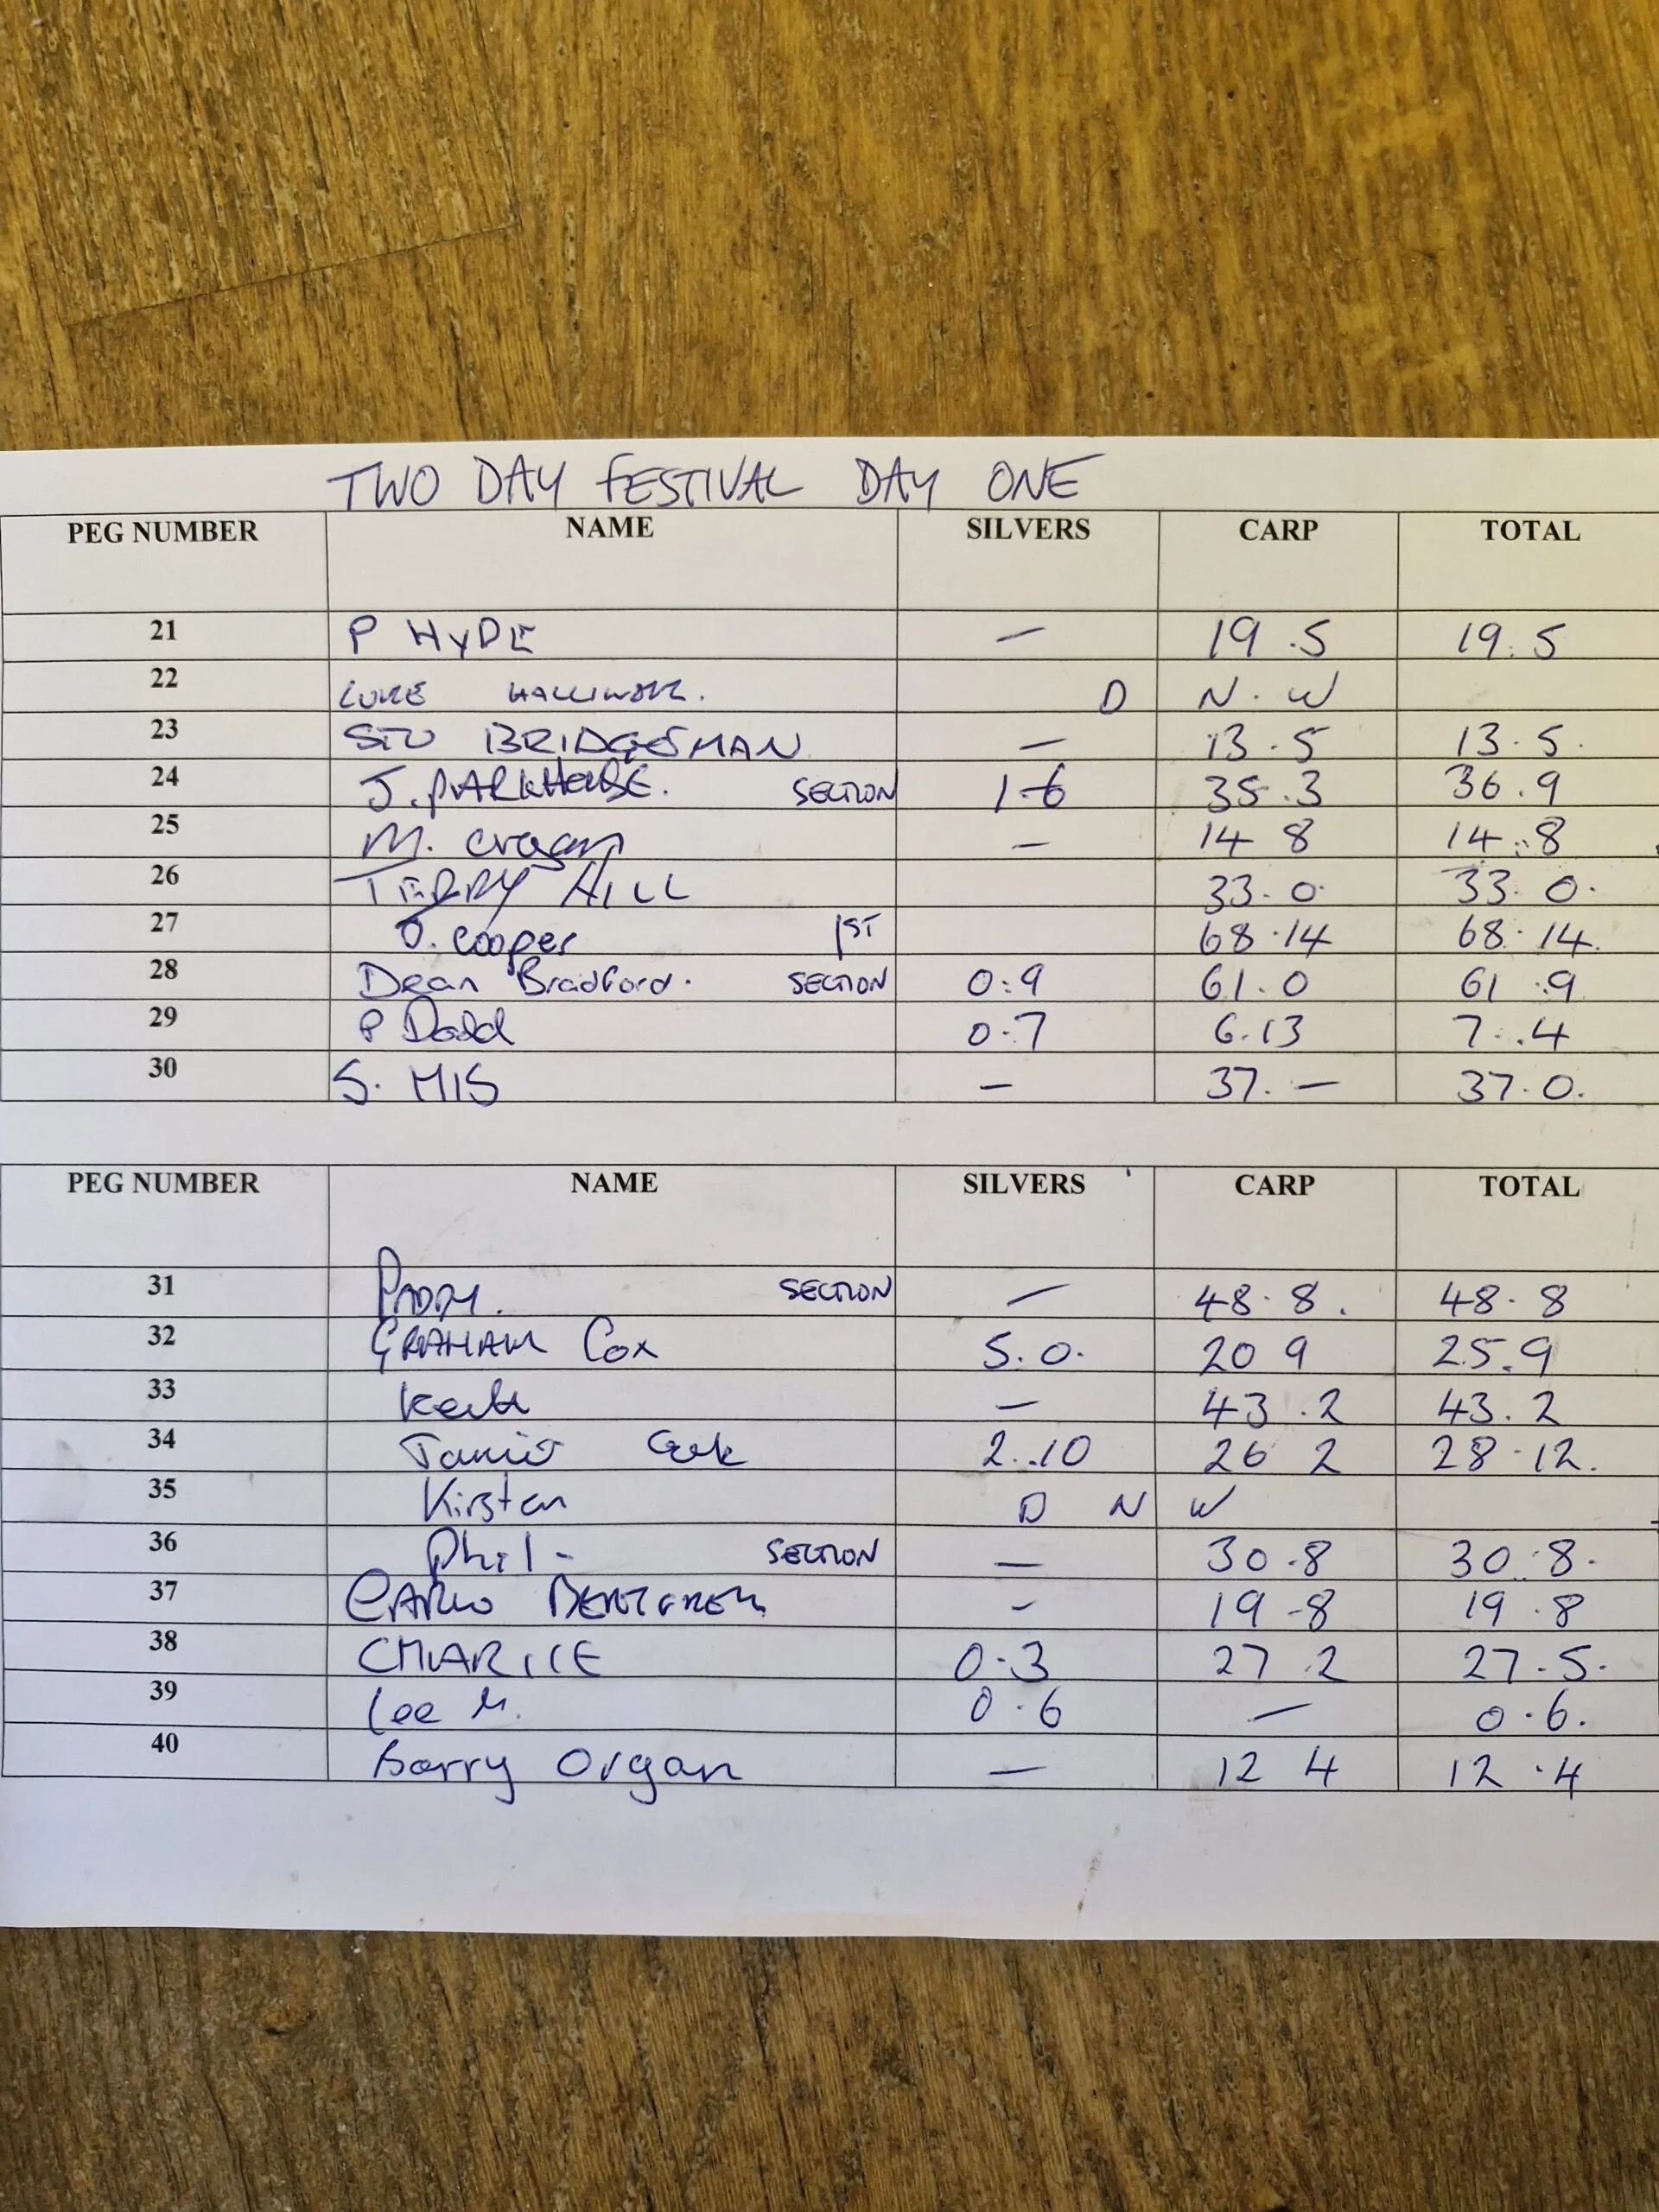 TWO DAY FESTIVAL DAY ONE
PEG NUMBER NAME SILVERS CARP TOTAL
21 P HYDE — 19.5 19.5
22 LUKE D N.W
23 STU BRIDGESMAN — 13.5 13.5.
24 J. PARKHOUSE. SECTION 1-6 35.3 36.9
25 M. Crogan — 14 8 14.8
26 TERRY HILL 33.0. 33.0.
27 J. Cooper 1ST 68.14 68.14.
28 Dean Bradford. SECTION 0.9 61.0 61.9
29 P Dodd 0.7 6.13 7.4
30 S. MIS — 37. — 37.0.
PEG NUMBER NAME SILVERS CARP TOTAL
31 PADDY. SECTION — 48.8. 48.8
32 GRAHAM COX 5.0. 20 9 25.9
33 Keith — 43.2 43.2
34 2.10 26 2 28.12.
35 Kirsten D N W
36 Phil - SECTION — 30.8 30.8.
37 CARLO — 19-8 19.8
38 CHARLIE 0.3 27.2 27.5.
39 Lee M. 0.6 — 0.6.
40 Barry Organ — 12 4 12.4